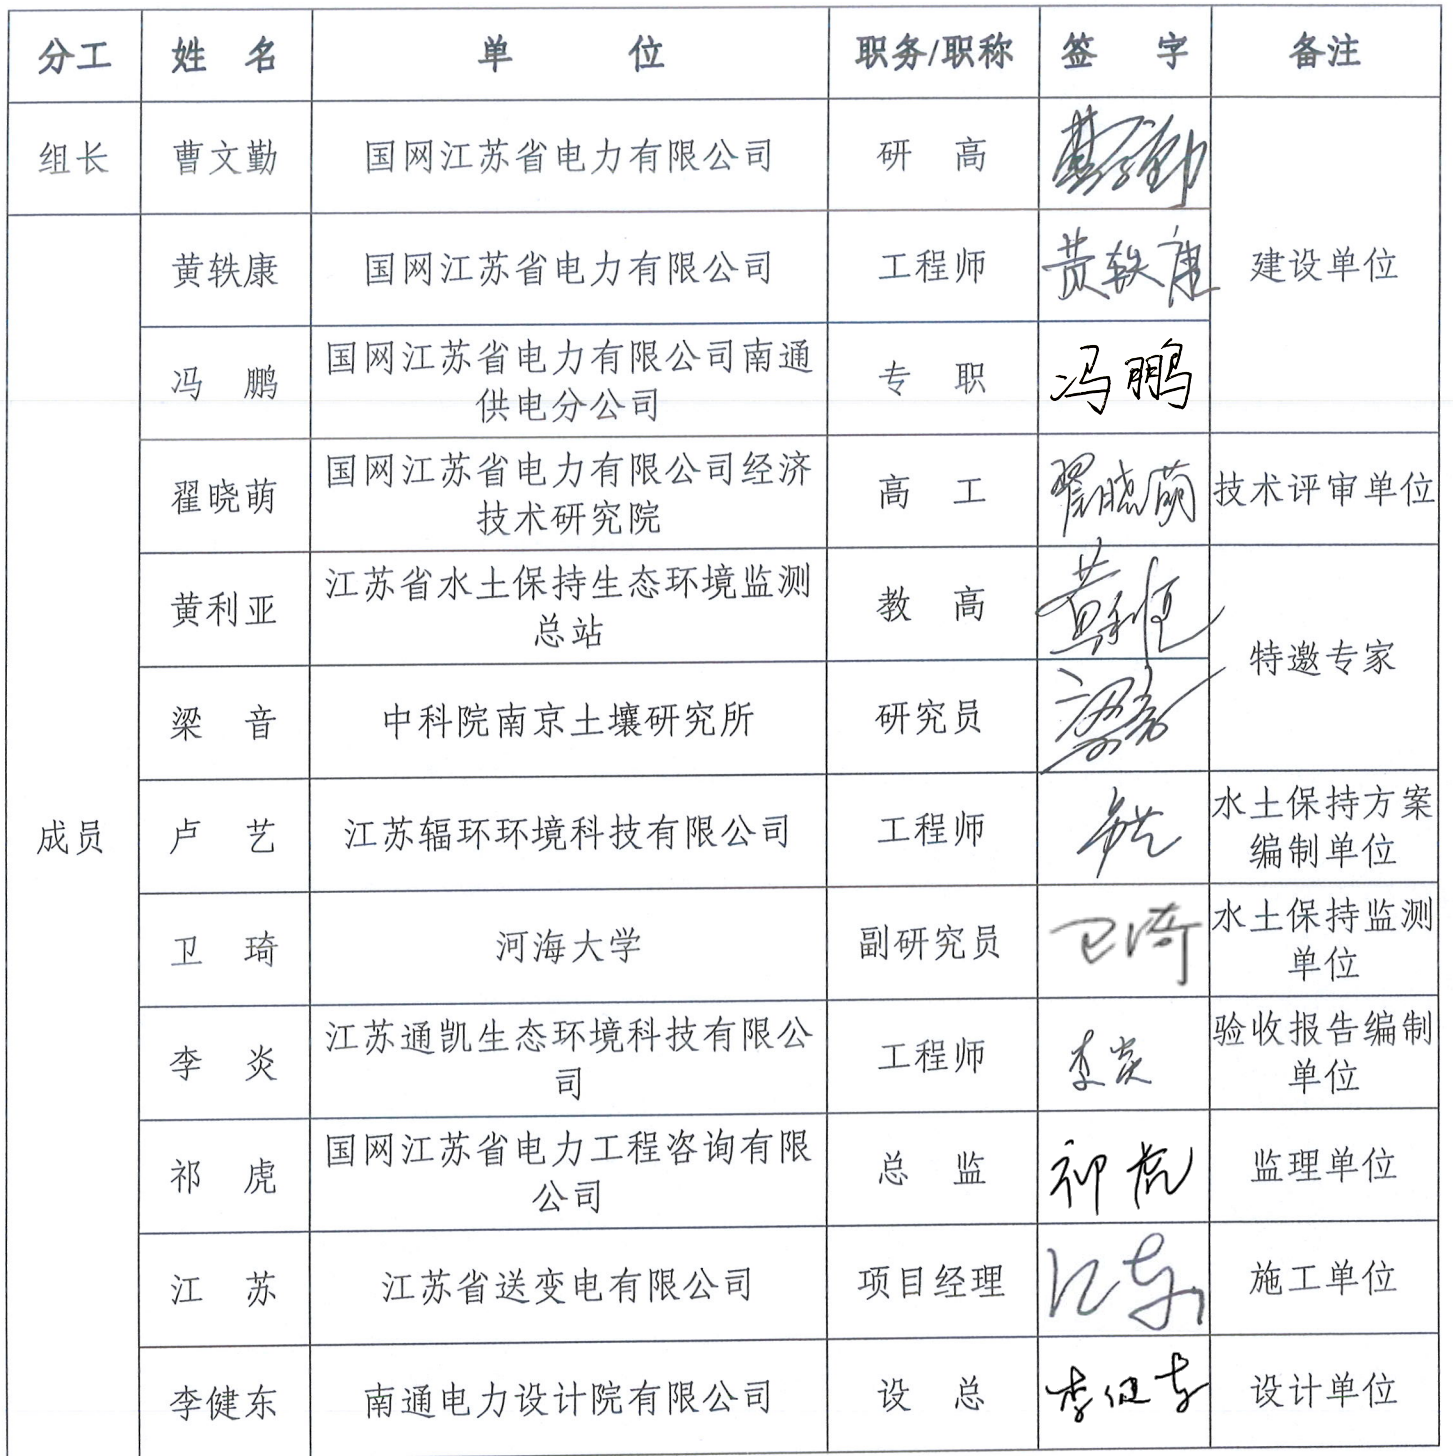 分工 姓 名 单 位 职务/职称 签 字 备注
组长 曹文勤 国网江苏省电力有限公司 研 高 曹文勤
黄轶康 国网江苏省电力有限公司 工程师 黄轶康 建设单位
冯 鹏 国网江苏省电力有限公司南通
供电分公司 专 职 冯鹏
翟晓萌 国网江苏省电力有限公司经济
技术研究院 高 工 翟晓萌 技术评审单位
黄利亚 江苏省水土保持生态环境监测
总站 教 高 黄利亚
特邀专家
梁 音 中科院南京土壤研究所 研究员 梁音
成员 卢 艺 江苏辐环环境科技有限公司 工程师 卢艺 水土保持方案
编制单位
卫 琦 河海大学 副研究员 卫琦 水土保持监测
单位
李 炎 江苏通凯生态环境科技有限公
司 工程师 李炎 验收报告编制
单位
祁 虎 国网江苏省电力工程咨询有限
公司 总 监 祁虎 监理单位
江 苏 江苏省送变电有限公司 项目经理 江苏 施工单位
李健东 南通电力设计院有限公司 设 总 李健东 设计单位